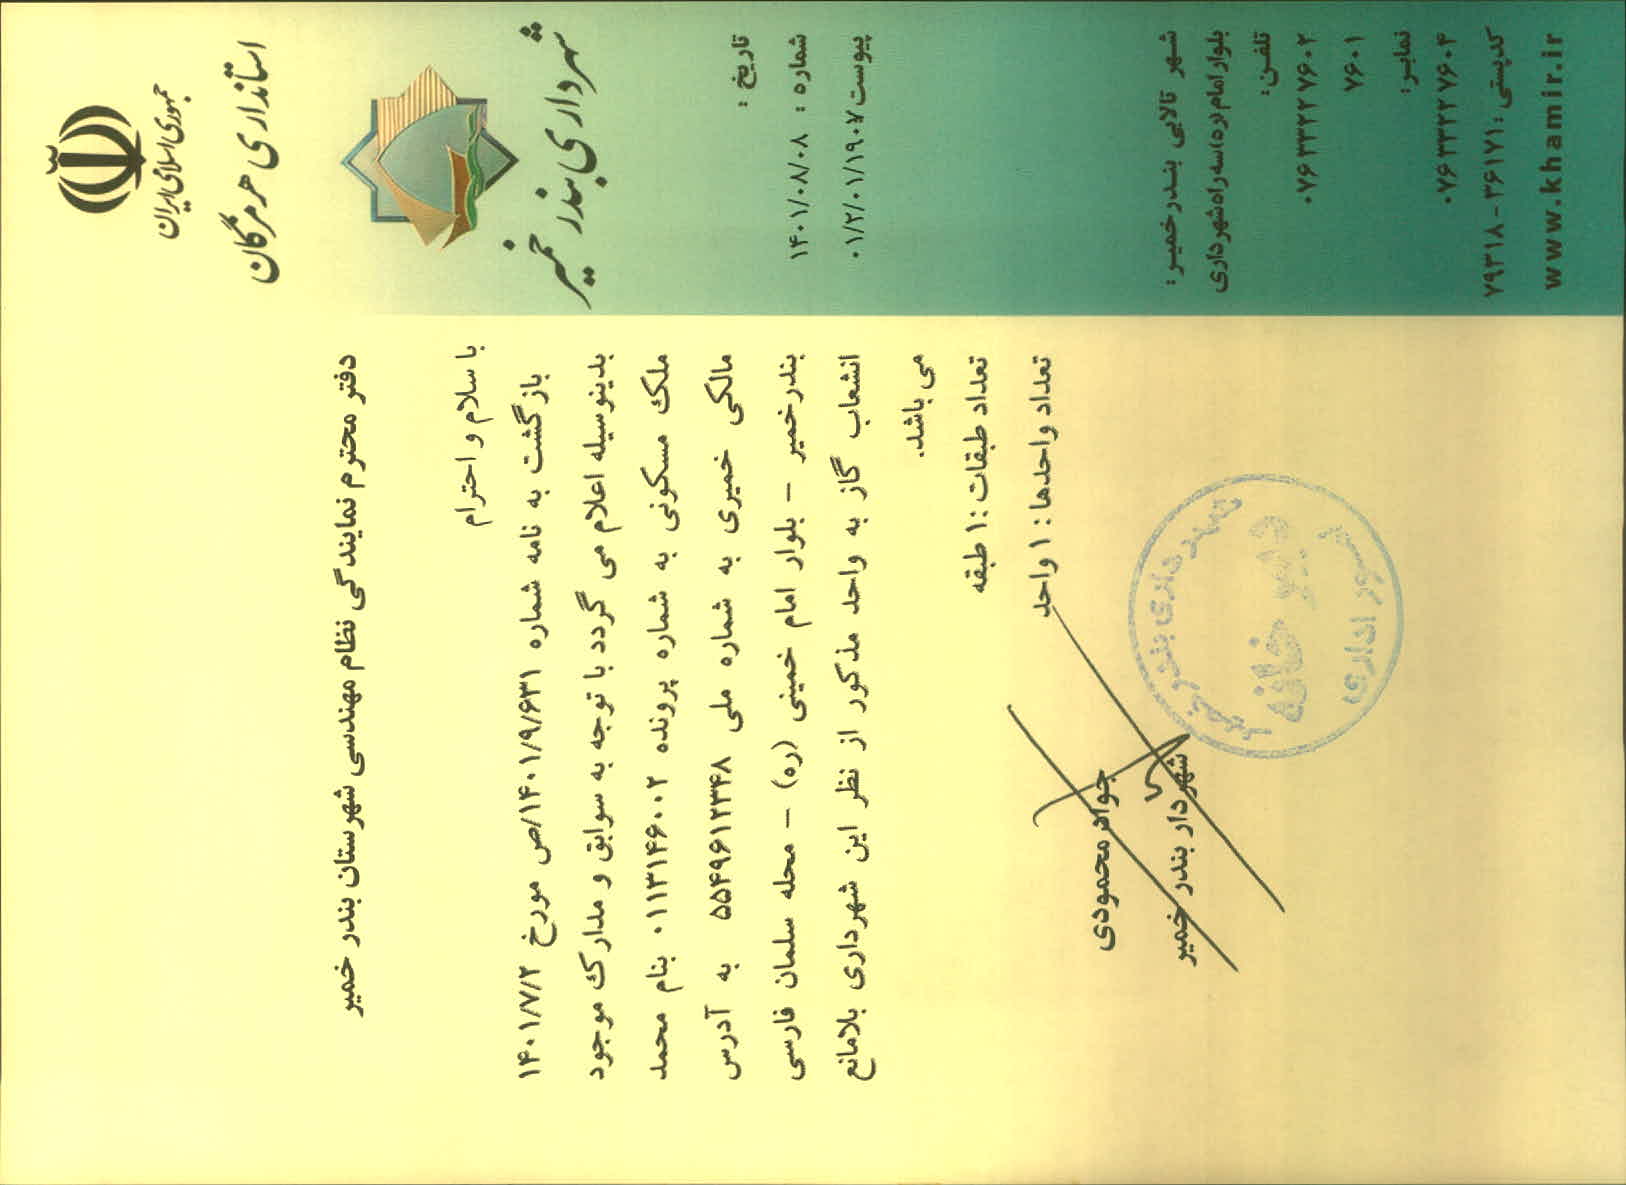 جمهوری اسلامی ایران
استانداری هرمزگان
شهرداری بندر خمیر
تاریخ :
شماره : ۱۴۰۱/۰۸/۰۸
پیوست ۰۱/۲/۰۱/۱۹۰۷
شهر تالابی بندر خمیر :
بلوار امام (ره) سه راه شهرداری
تلفن:
۰۷۶۳۳۲۲۷۶۰۲
۷۶۰۱
نمابر:
۰۷۶۳۳۲۲۷۶۰۴
کدپستی : ۳۶۱۷۱-۷۹۳۱۸
www.khamir.ir
دفتر محترم نمایندگی نظام مهندسی شهرستان بندر خمیر
با سلام و احترام
بازگشت به نامه شماره ۱۴۰۱/۹/۶۳۱/ص مورخ ۱۴۰۱/۷/۲
بدینوسیله اعلام می گردد با توجه به سوابق و مدارک موجود
ملک مسکونی به شماره پرونده ۰۱۱۳۱۴۶۰۰۲ بنام محمد
مالکی خمیری به شماره ملی ۵۵۴۹۶۱۲۳۴۸ به آدرس
بندرخمیر – بلوار امام خمینی (ره) – محله سلمان فارسی
انشعاب گاز به واحد مذکور از نظر این شهرداری بلامانع
می باشد.
تعداد طبقات : ۱ طبقه
تعداد واحدها : ۱ واحد
جواد محمودی
شهردار بندر خمیر
شهرداری بندر خمیر
دبیرخانه
امور اداری